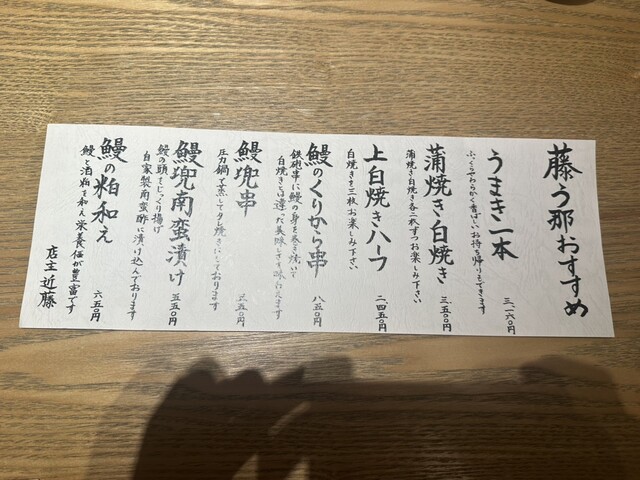 藤う那おすすめ
うまき一本
ふっくらやわらかく香ばしいお持ち帰りもできます
三、一六〇円
蒲焼き白焼き
蒲焼き白焼き各二枚ずつお楽しみ下さい
三、五〇円
上白焼きハーフ
白焼きを三枚お楽しみ下さい
二四五〇円
鰻のくりから串
鉄砲串に鰻の身を巻き焼いて
白焼きとは違った美味しさを味わえます
八五〇円
鰻兜串
圧力鍋で蒸してタレ焼きにしております
三五〇円
鰻兜南蛮漬け
鰻の頭をじっくり揚げ
自家製南蛮酢に漬け込んでおります
五五〇円
鰻の粕和え
鰻と酒粕を和え栄養価が豊富です
六五〇円
店主 近藤